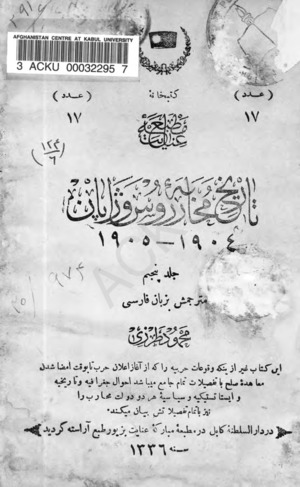 AFGHANISTAN CENTRE AT KABUL UNIVERSITY
3 ACKU 00032295 7
(عدد) کتبخانهٔ (عدد)
۱۷ مطبعه عنایت ۱۷
۱۲۴
۶
تاریخ محاربه روس و ژاپان
۱۹۰۴ ــ ۱۹۰۵
جلد پنجم
مترجمش بزبان فارسی
محمود طرزی
این کتاب غیر از ینکه وقوعات حربیه را که از آغاز اعلان حرب تا وقت امضا شدن
معاهدهٔ صلح با تفصیلات تمام جامع میباشد احوال جغرافیه و تاریخیه
و ایستاتستیکیه و سیاسیهٔ هر دو دولت محارب را
نیز با تمام تفصیلاتش بیان میکند
در دارالسلطنهٔ کابل در مطبعهٔ مبارکهٔ عنایت بزیور طبع آراسته گردید
سنه ۱۳۳۶